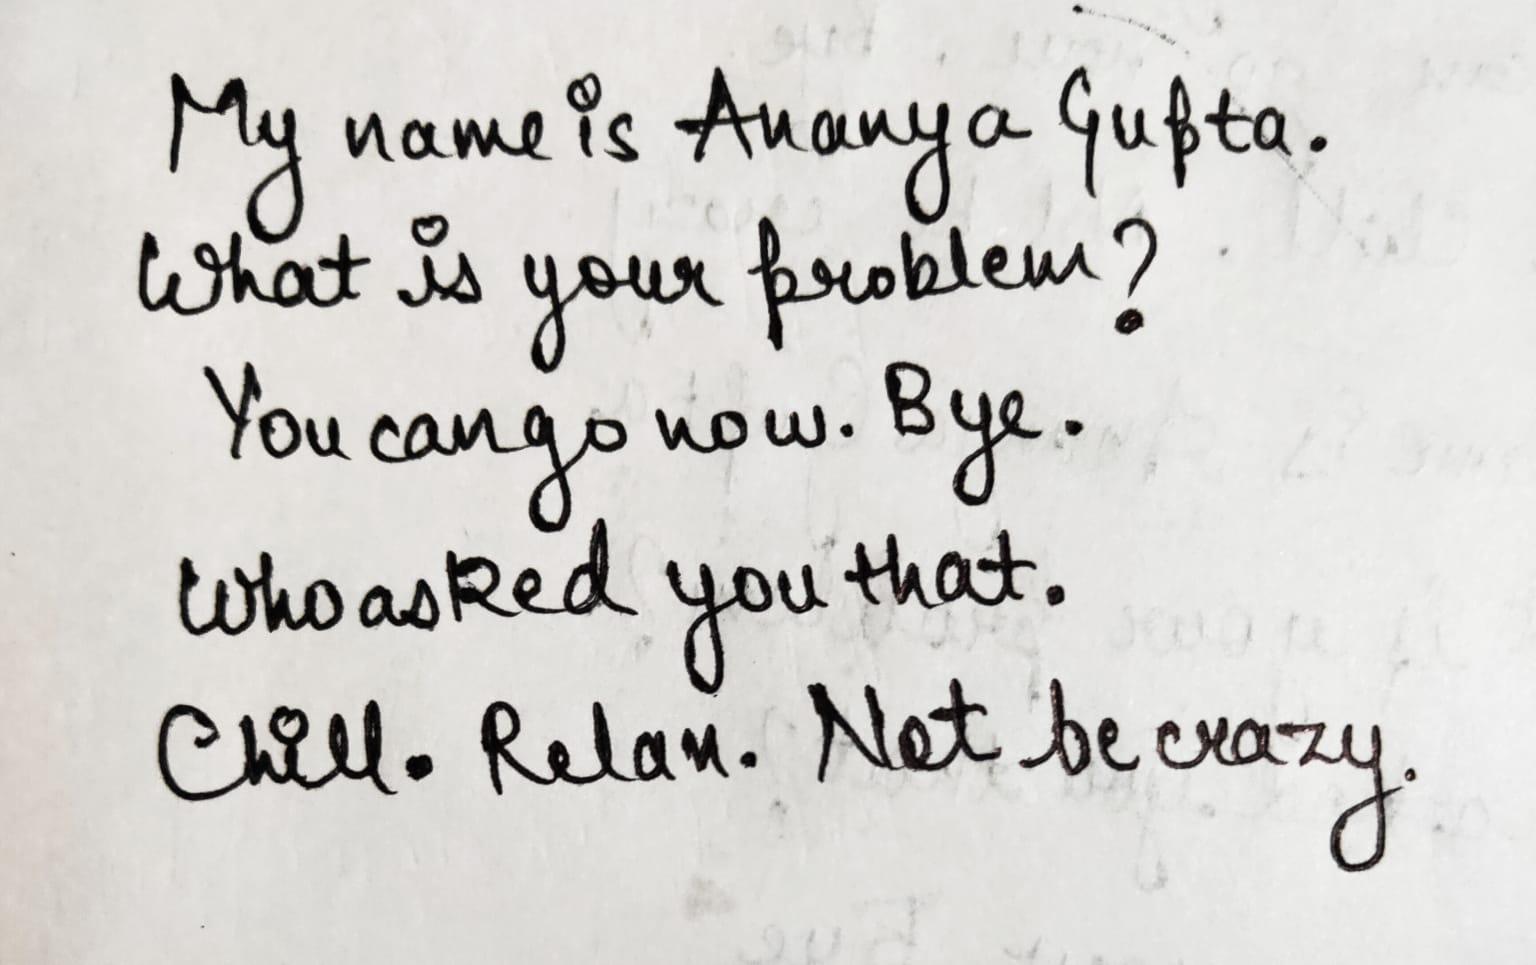 My name is Ananya Gupta.
What is your problem?
You can go now. Bye.
Who asked you that.
Chill. Relax. Not be crazy.